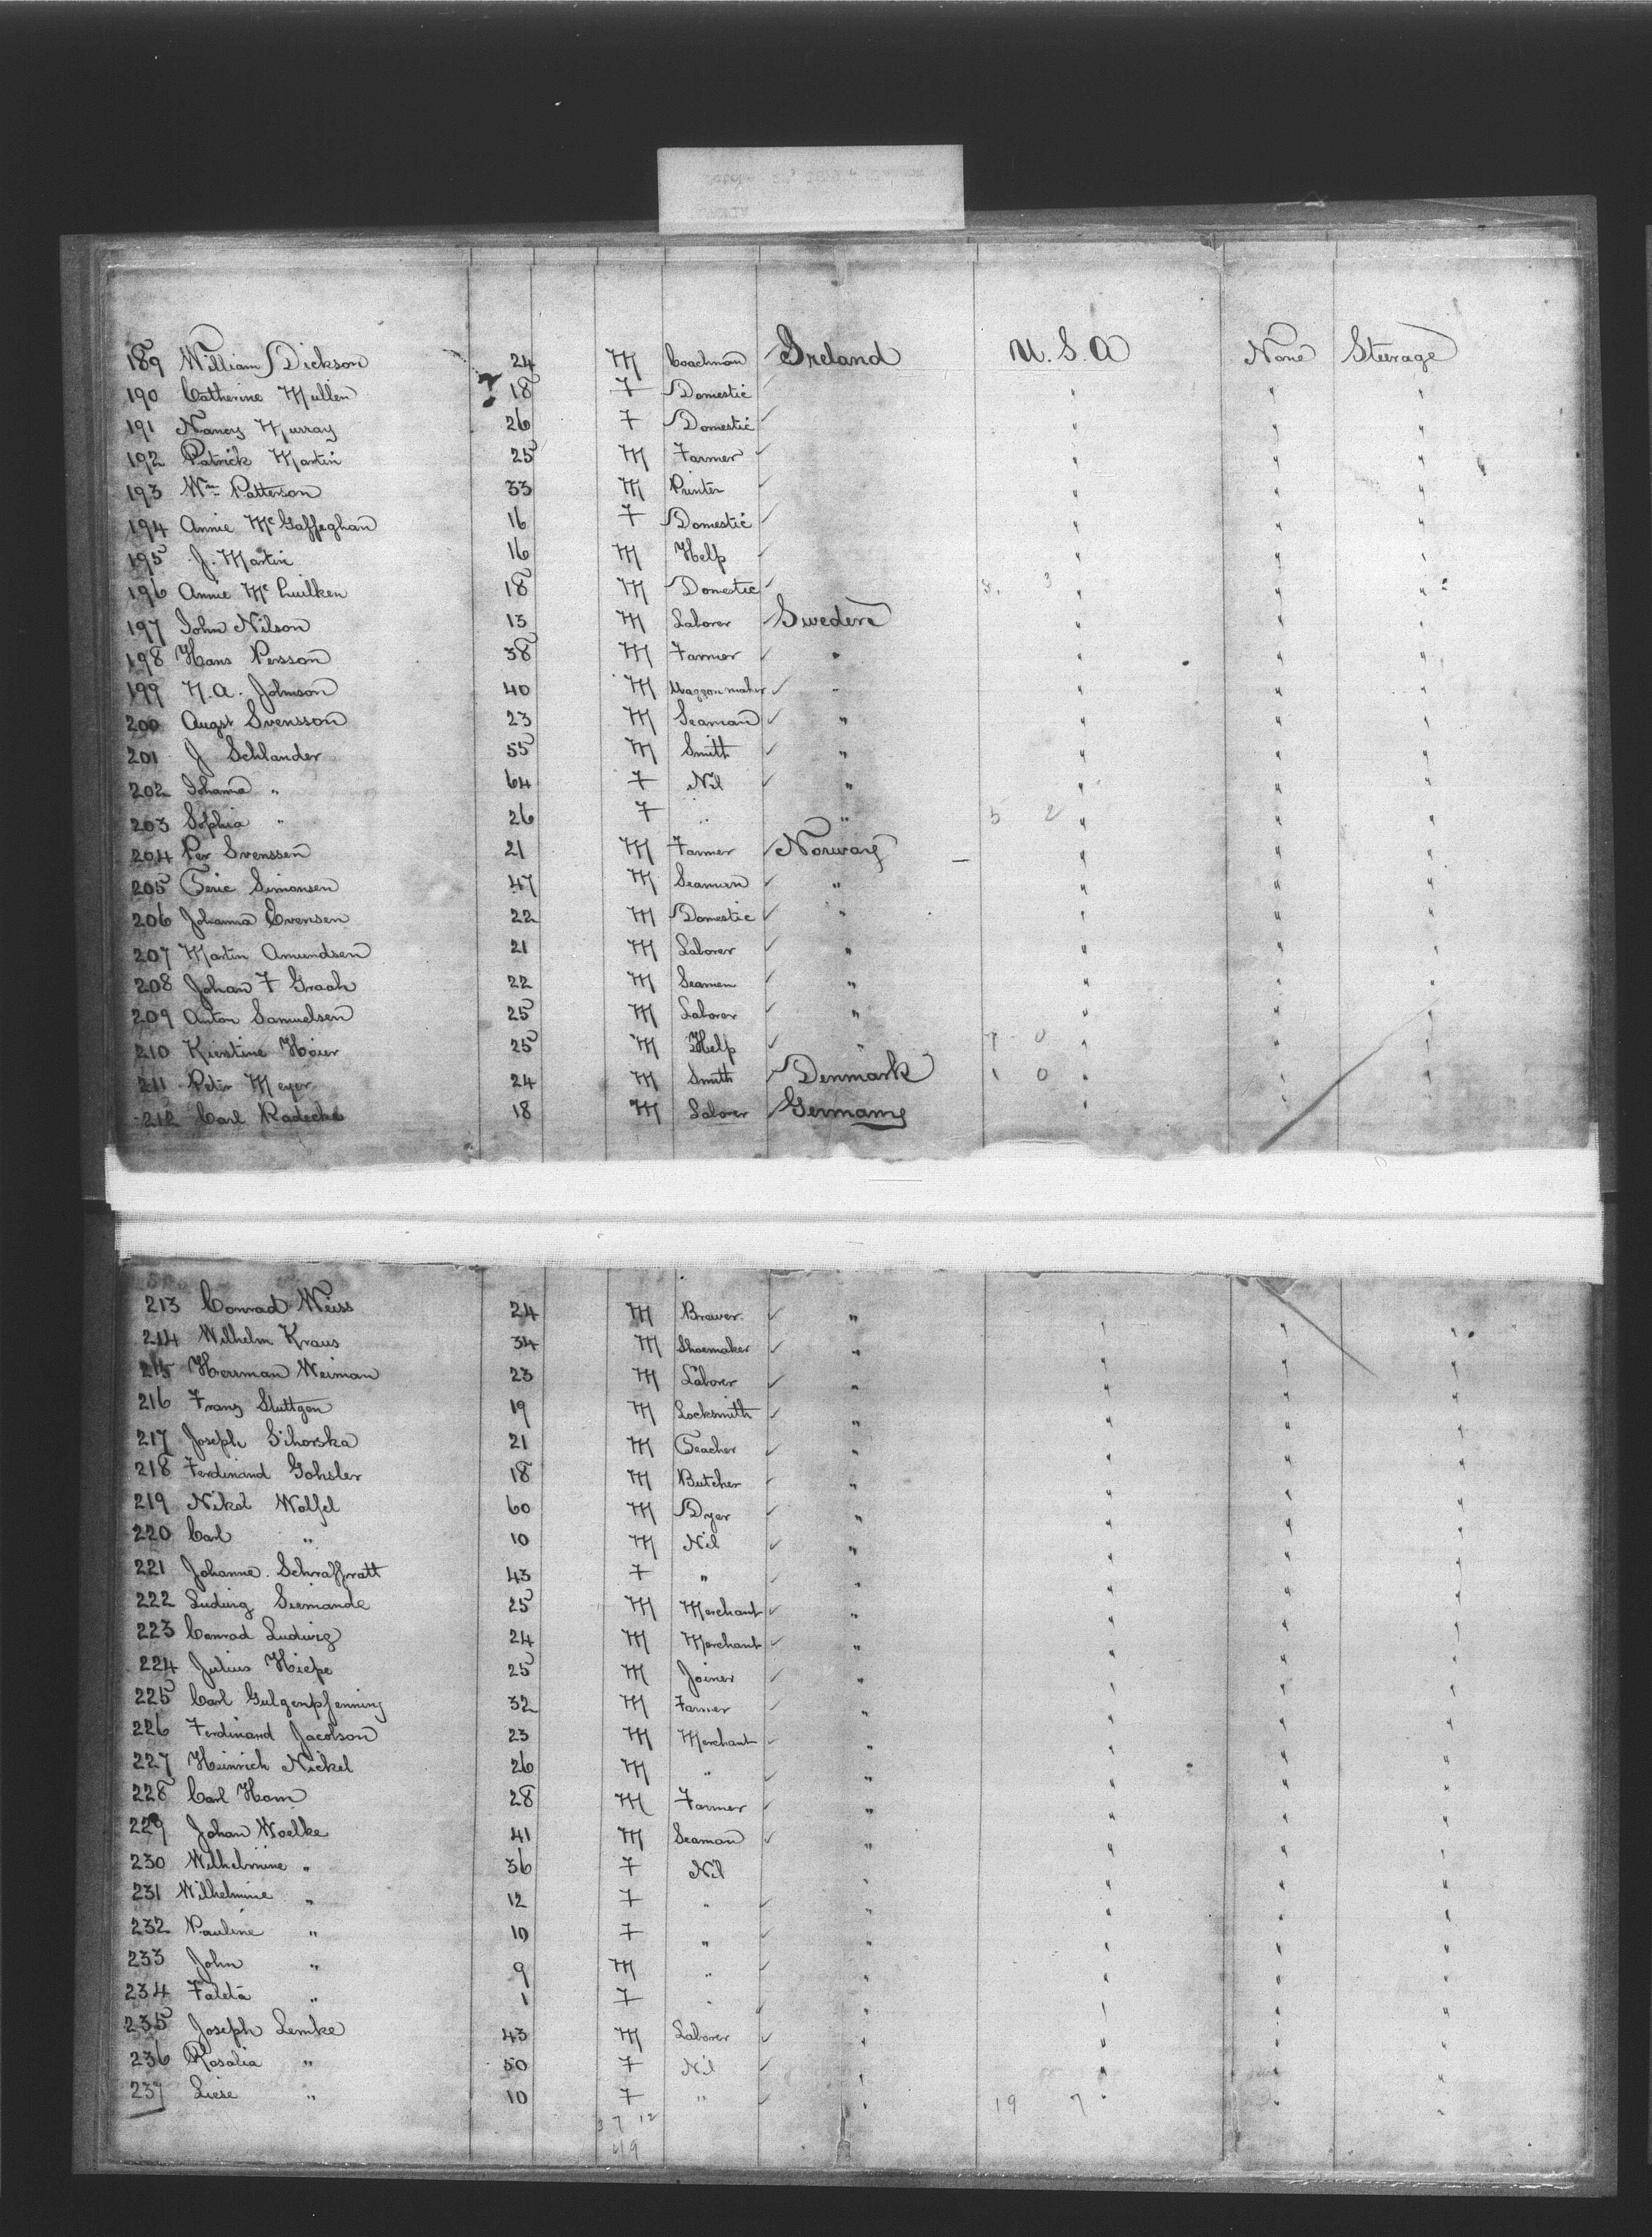 189 William Dickson 24 M Coachman Ireland U.S.A None Steerage
190 Catherine Mullen 18 F Domestic " " "
191 Nancy Murray 26 F Domestic " " "
192 Patrick Martin 25 M Farmer " " "
193 Wm Patterson 33 M Printer " " "
194 Annie McGaffeghan 16 F Domestic " " "
195 J. Martin 16 M Help " " "
196 Annie Mc 18 M Domestic " " "
197 John Nilson 13 M Laborer Sweden " " "
198 Hans Persson 38 M Farmer " " " "
199 N.A. Johnson 40 M Waggon maker " " " "
200 Augst Svensson 23 M Seaman " " " "
201 J Schlander 55 M Smith " " " "
202 Johanna " 64 F Nil " " " "
203 Sophia " 26 F " " 5 2 " " "
204 Per Svenssen 21 M Farmer Norway " " "
205 Simonsen 47 M Seaman " " " "
206 Johanna Evensen 22 M Domestic " " " "
207 Martin Amundsen 21 M Laborer " " " "
208 Johan F Graah 22 M Seamen " " " "
209 Anton Samuelsen 25 M Laborer " " " "
210 Kierstine Hoier 25 M Help " 7 0 " " "
211 Peter Meyer 24 M Smith Denmark 1 0 " " "
212 Carl Radecke 18 M Laborer Germany " " "
213 Conrad Weiss 24 M Brewer " " " "
214 Wilhelm Kraus 34 M Shoemaker " " " "
215 Herrman Weiman 23 M Laborer " " " "
216 Franz Stuttgen 19 M Locksmith " " " "
217 Joseph Sihorska 21 M Teacher " " " "
218 Ferdinand Gohsler 18 M Butcher " " " "
219 Nikol Wolfel 60 M Dyer " " " "
220 Carl " 10 M Nil " " " "
221 Johanne Schraffratt 43 F " " " " "
222 Ludwig Siemande 25 M Merchant " " " "
223 Conrad Ludwig 24 M Merchant " " " "
224 Julius Hiepe 25 M Joiner " " " "
225 Carl Gulgenpfenning 32 M Farmer " " " "
226 Ferdinand Jacobson 23 M Merchant " " " "
227 Heinrich Nickel 26 M " " " " "
228 Carl Horn 28 M Farmer " " " "
229 Johan Woelke 41 M Seaman " " " "
230 Wilhelmine " 36 F Nil " " " "
231 Wilhelmine " 12 F " " " " "
232 Pauline " 10 F " " " " "
233 John " 9 M " " " " "
234 " 1 F " " " " "
235 Joseph Lemke 43 M Laborer " " " "
236 Rosalia " 50 F Nil " " " "
237 Liese " 10 F " " 19 7 " " "
37 12
49